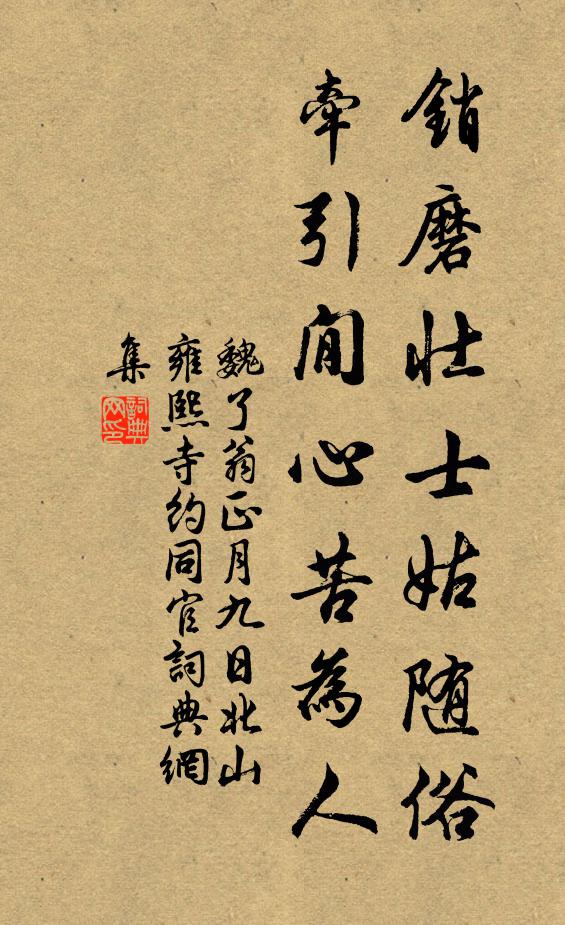 銷磨壯士姑随俗
牽引閒心苦為人
魏了翁正月九日北山
雍熙寺約同官詞典網
集
詞典
网印